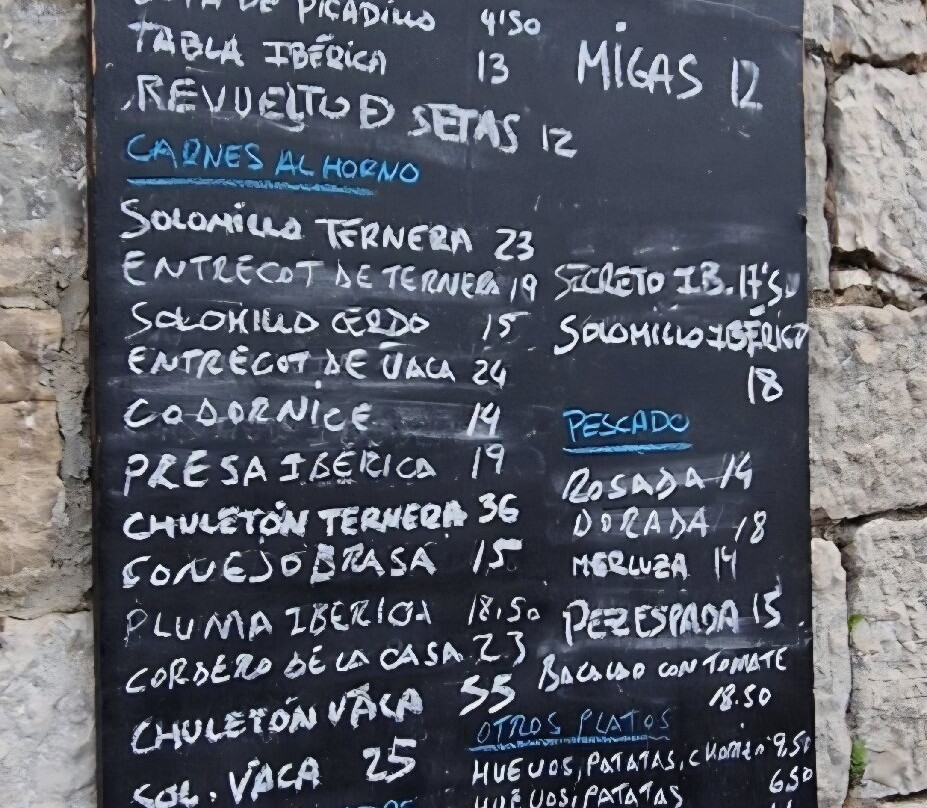 DE PICADILLO 4'50
TABLA IBÉRICA 13
MIGAS 12
REVUELTO D SETAS 12
CARNES AL HORNO
SOLOMILLO TERNERA 23
ENTRECOT DE TERNERA 19
SOLOMILLO CERDO 15
ENTRECOT DE VACA 24
CODORNICE 14
PRESA IBÉRICA 19
CHULETÓN TERNERA 36
CONEJO BRASA 15
PLUMA IBERICA 18.50
CORDERO DE LA CASA 23
CHULETÓN VACA 55
SOL. VACA 25
SECRETO IB. 17'50
SOLOMILLO IBÉRICO
18
PESCADO
ROSADA 14
DORADA 18
MERLUZA 14
PEZ ESPADA 15
BACALAO CON TOMATE
18.50
OTROS PLATOS
HUEVOS, PATATAS, 9,50
HUEVOS, PATATAS 6,50